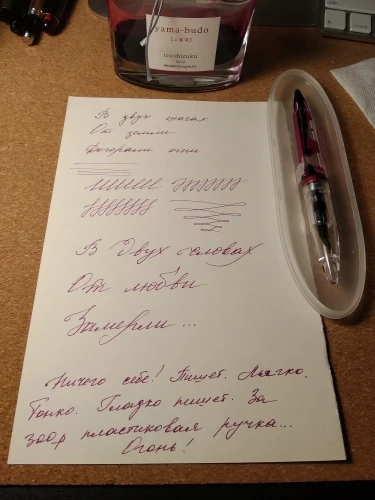 yama-budo
iroshizuku
В двух шагах
От земли
Догорали огни
В двух словах
От любви
Замерли...
Ничего себе! Пишет. Мягко.
Тонко. Гладко пишет. За
300р пластиковая ручка...
Огонь!